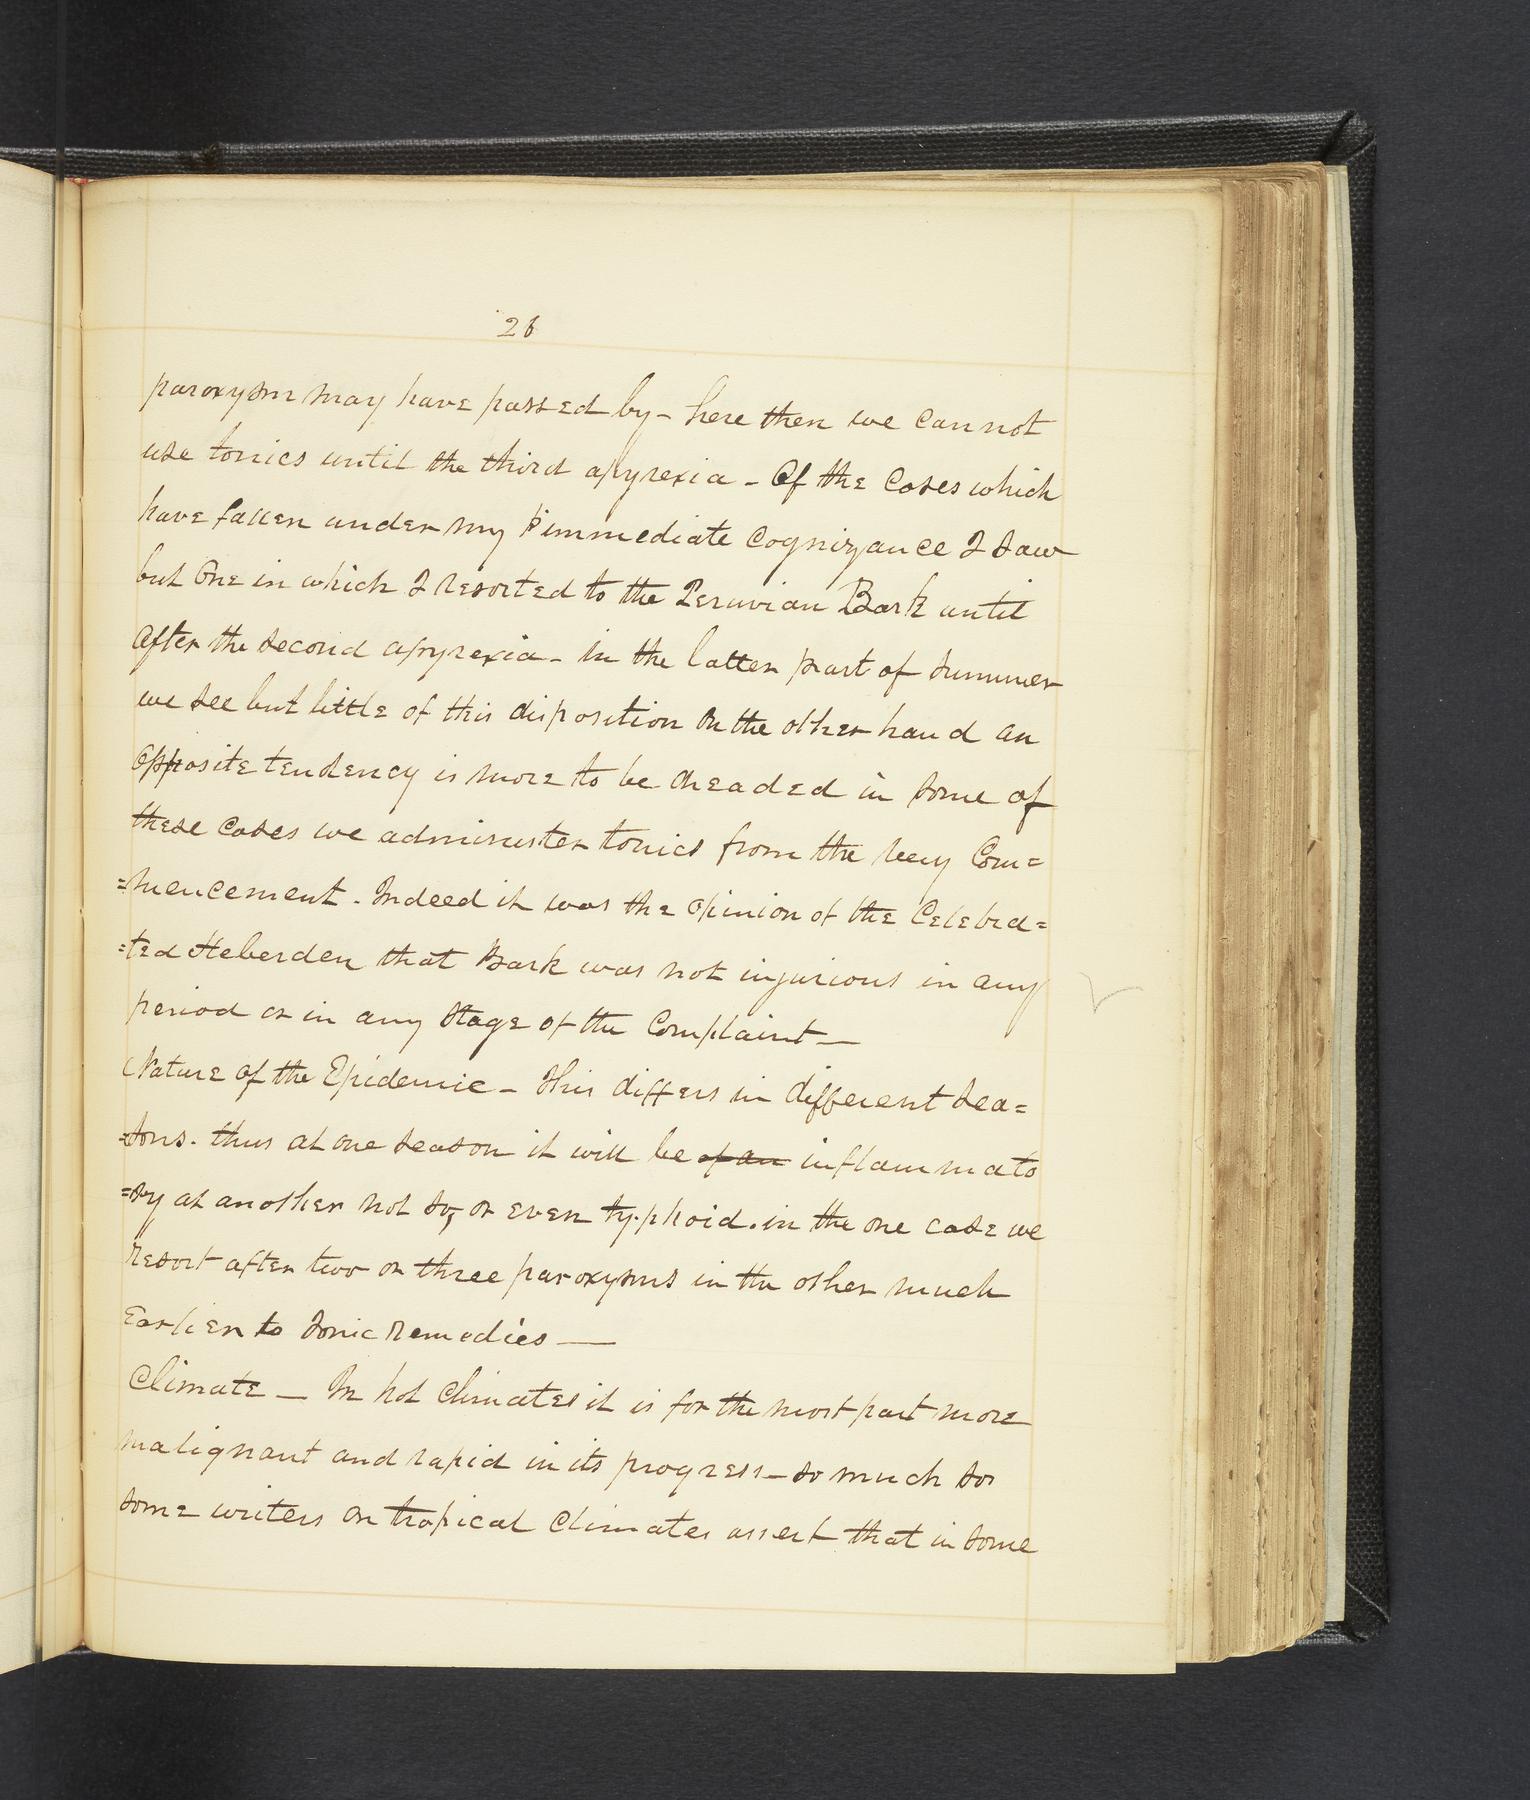 26
paroxysm may have passed by - here then we cannot
use tonics until the third apyrexia - Of the Cases which
have fallen under my immediate Cognizance I saw
but One in which I resorted to the Peruvian Bark until
after the second apyrexia - in the latter part of summer
we see but little of this disposition On the other hand an
opposite tendency is more to be dreaded in some of
these cases we administer tonics from the very Com=
=mencement. Indeed it was the opinion of the Celebra=
=ted Heberden that Bark was not injurious in any
period or in any stage of the Complaint —
Nature of the Epidemic - This differs in different sea=
=sons. thus at one season it will be of an inflammato
=ry at another not so, or even typhoid. in the one case we
resort after two or three paroxysms in the other much
Earlier to tonic Remedies —
Climate — In hot Climates it is for the most part more
malignant and rapid in its progress - so much so
some writers on tropical Climates assert that in some